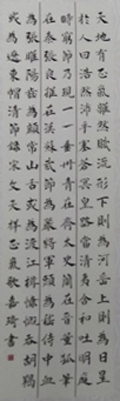 天地有正氣雜然賦流形下則為河岳上則為日星
於人曰浩然沛乎塞蒼冥皇路當清夷含和吐明庭
時窮節乃現一一垂丹青在齊太史簡在晉董狐筆
在秦張良椎在漢蘇武節為嚴將軍頭為嵇侍中血
為張睢陽齒為顏常山舌或為渡江楫慷慨吞胡羯
或為遼東帽清節錄宋文天祥正氣歌嘉琦書